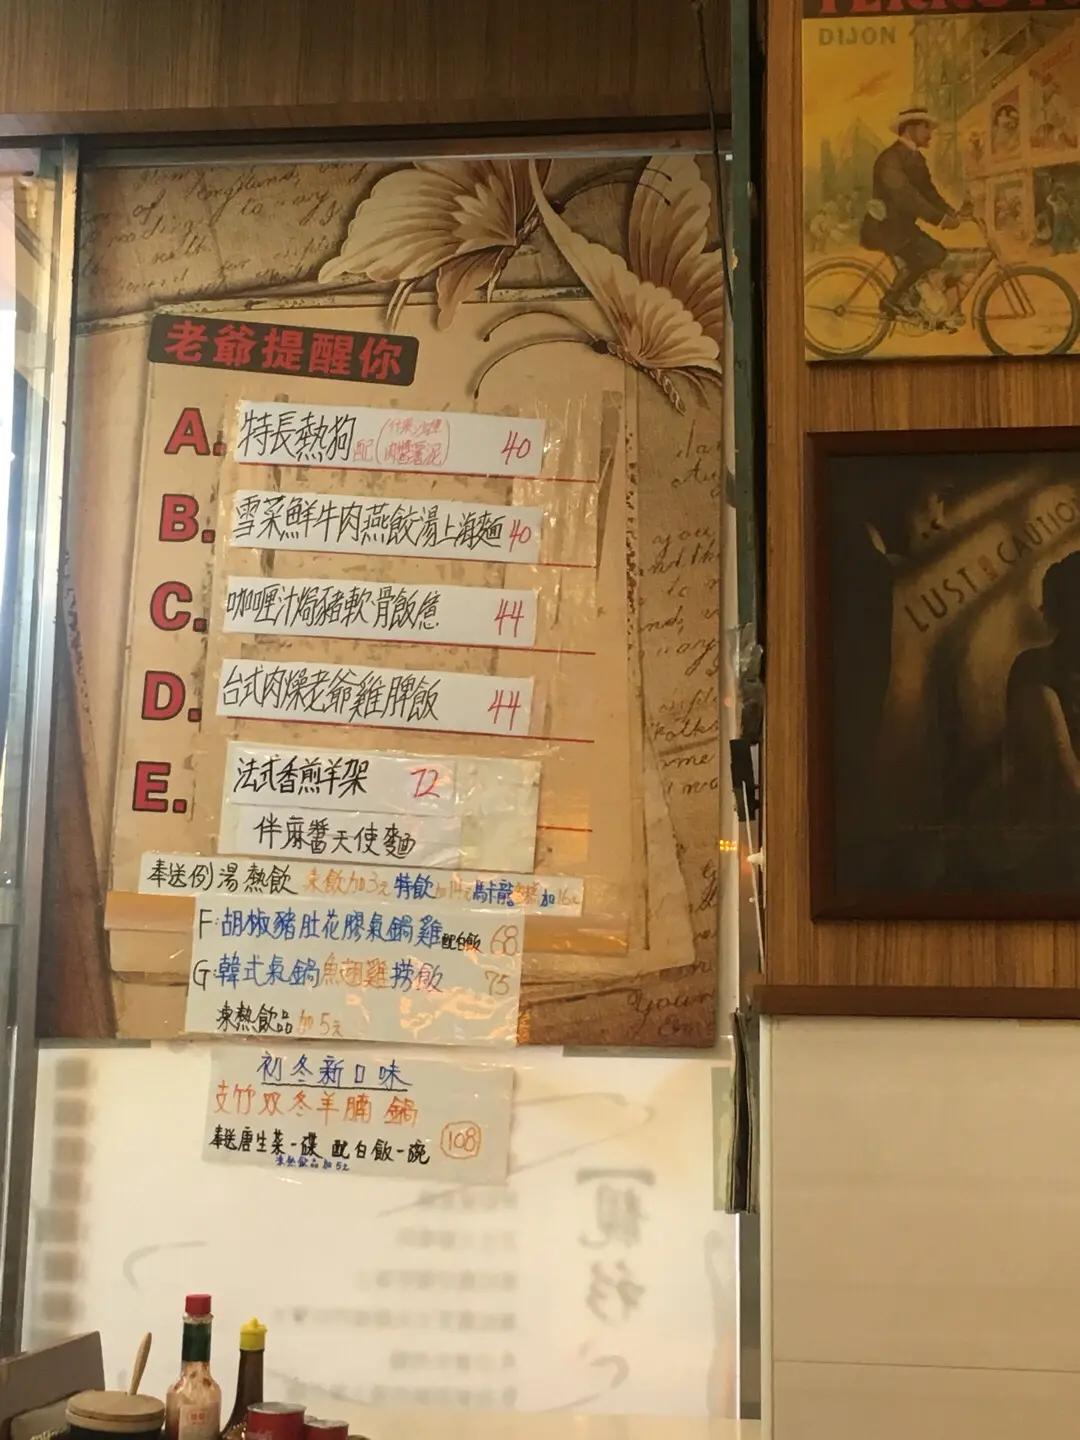 老爺提醒你
A. 特長熱狗 配(什菜沙律 肉醬薯泥) 40
B. 雪菜鮮牛肉燕餃湯上海麵 40
C. 咖喱汁焗豬軟骨飯意 44
D. 台式肉燥老爺雞脾飯 44
E. 法式香煎羊架 72
伴麻醬天使麵
奉送例湯熱飲 凍飲加3元 特飲加14元 馬卡龍 加16元
F:胡椒豬肚花膠氣鍋雞配白飯 68
G:韓式氣鍋魚翅雞撈飯 75
凍熱飲品加5元
初冬新口味
支竹双冬羊腩鍋
奉送唐生菜一碟 配白飯一碗 108
凍熱飲品加5元
DIJON
LUST CAUTION